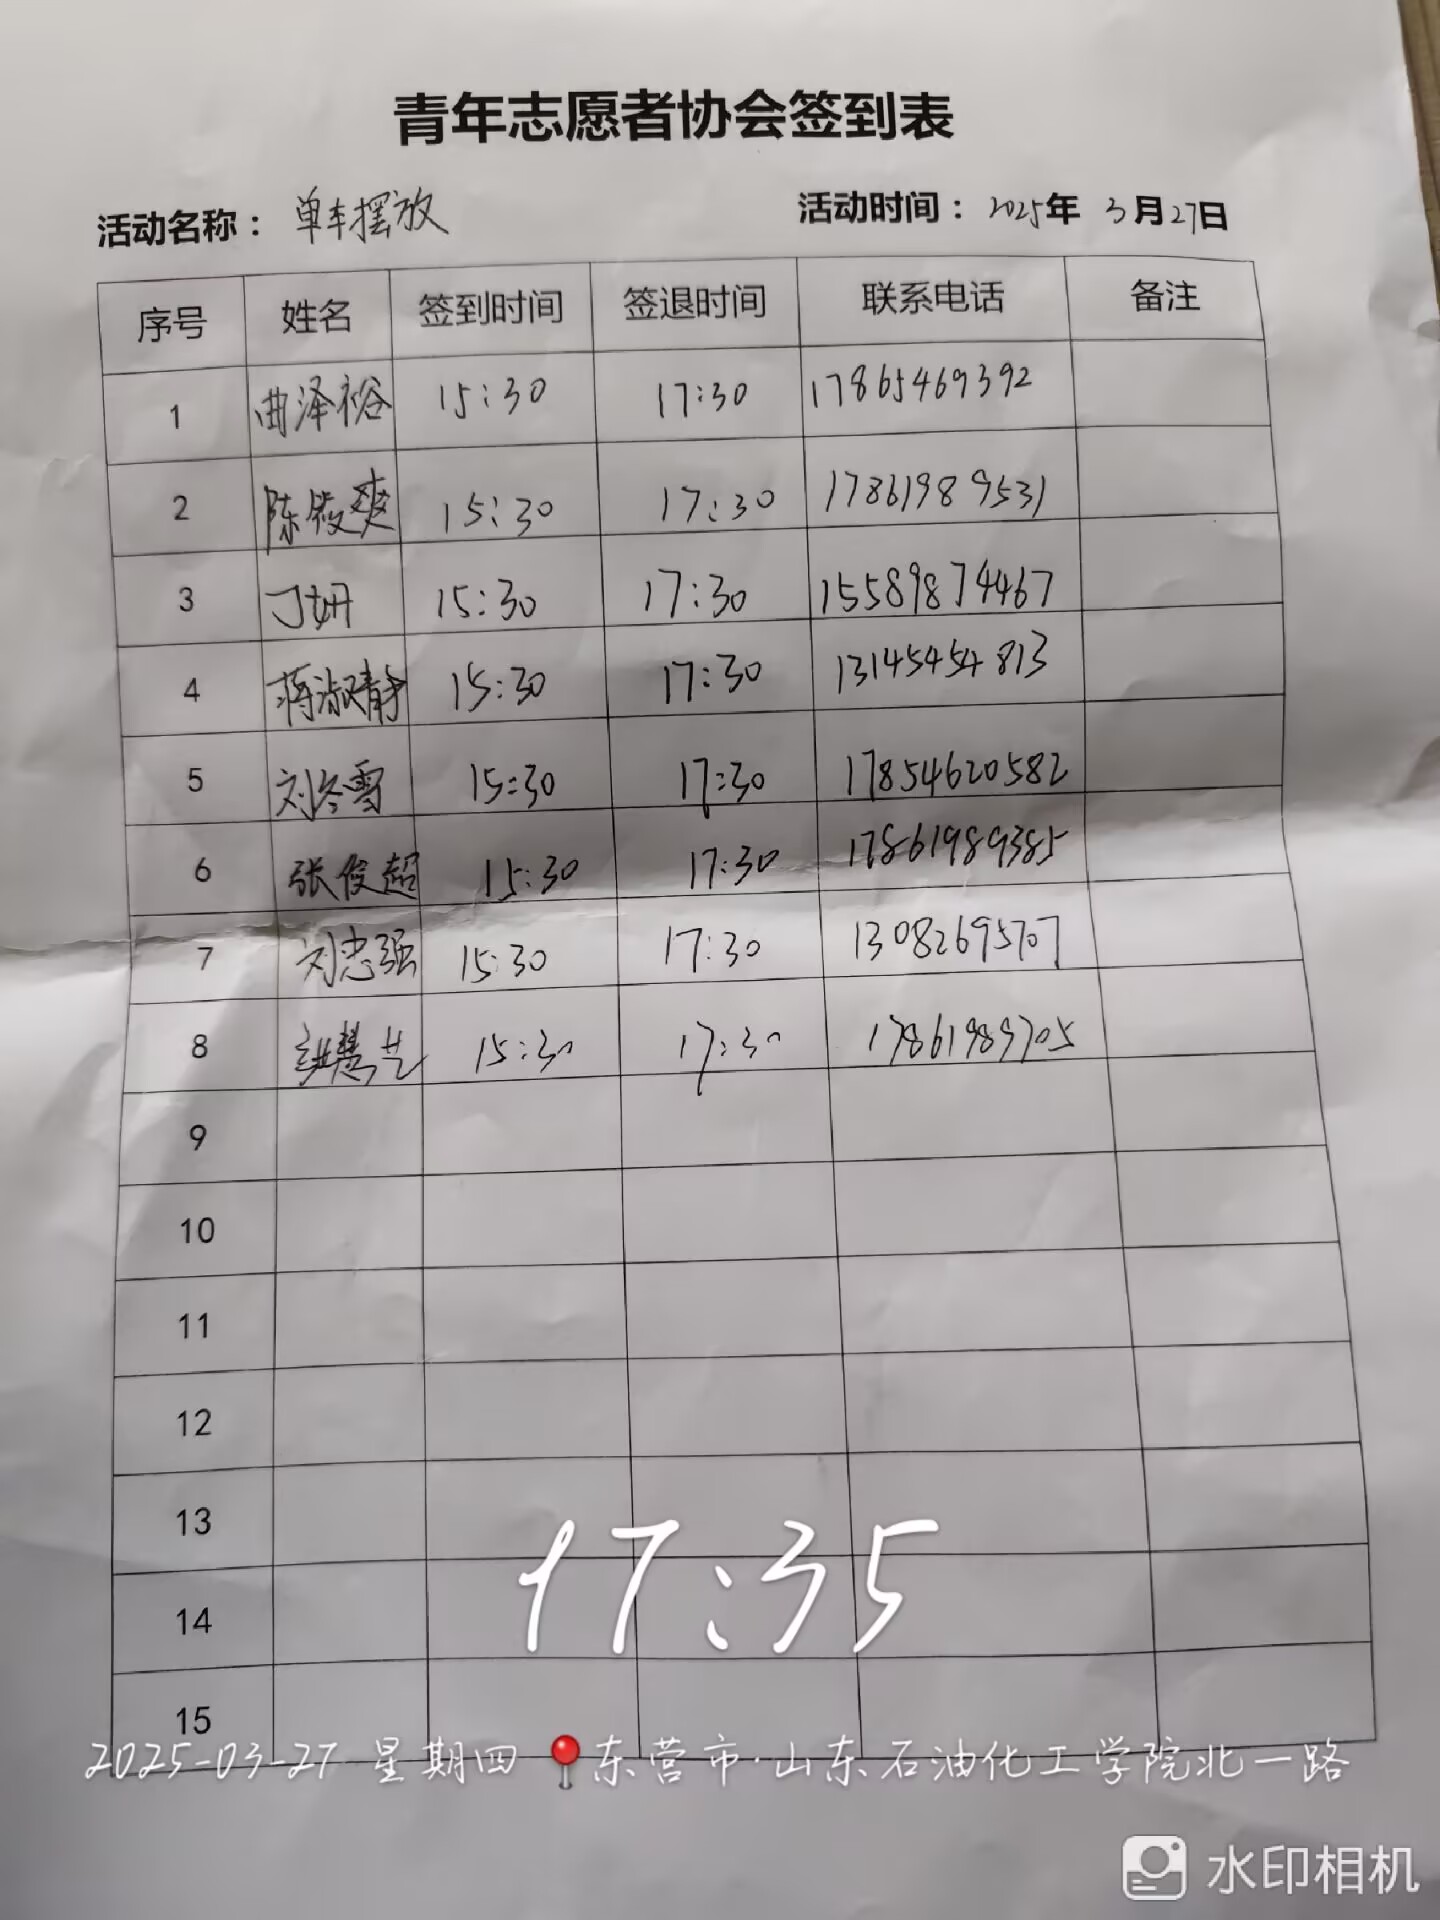 青年志愿者协会签到表
活动名称：单车摆放 活动时间：2025年 3月27日
序号 姓名 签到时间 签退时间 联系电话 备注
1 曲泽裕 15:30 17:30 17865469392
2 陈筱爽 15:30 17:30 17861989531
3 丁妍 15:30 17:30 15589874467
4 蒋淑静 15:30 17:30 13145454813
5 刘冬雪 15:30 17:30 17854620582
6 张俊超 15:30 17:30 17861989385
7 刘忠强 15:30 17:30 13082695707
8 15:30 17:30 17861989705
9
10
11
12
13
14
15
17:35
2025-03-27 星期四 东营市·山东石油化工学院北一路
水印相机